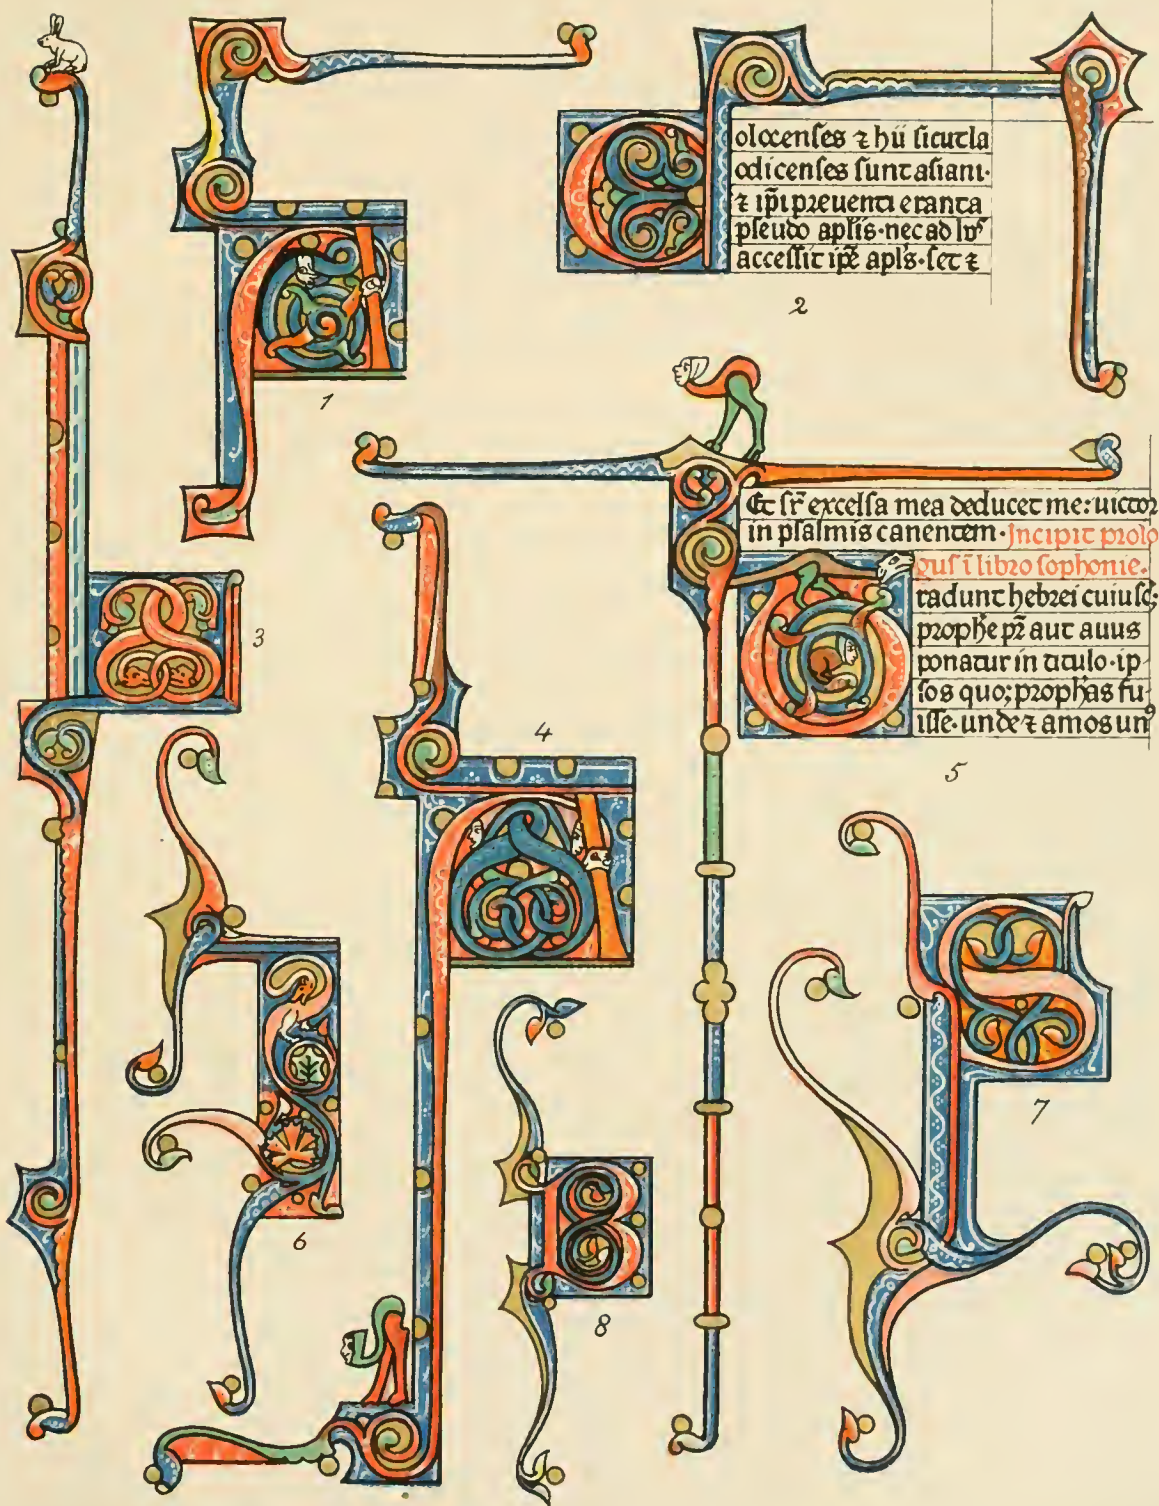 olocenses ⁊ hii sicut la
odicenses sunt asiani·
⁊ ip̄i preuenti erant a
pseudo apl̄is· nec ad hos
accessit ip̄e apl̄s· set ⁊
1
2
Et sr̄ excelsa mea deducet me: uictor
in psalmis canentem· Incipit prolo
gus ī libro sophonie·
radunt hebrei cuiusc;
prophe pr̄ aut auus
ponatur in titulo· ip
sos quoꝫ prophas fu
isse· unde ⁊ amos unꝰ
3
4
5
6
7
8